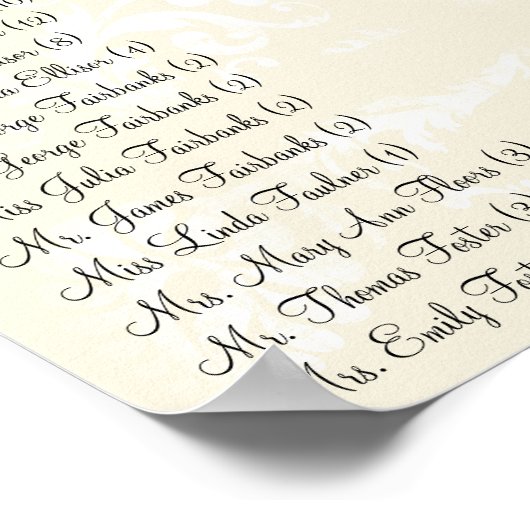 (12)
(8)
Ellisor (4)
George Fairbanks (2)
George Fairbanks (2)
Miss Julia Fairbanks (2)
Mr. James Fairbanks (2)
Miss Linda Faulner (1)
Mrs. Mary Ann Floors (3)
Mr. Thomas Foster (3
Mrs. Emily Fost